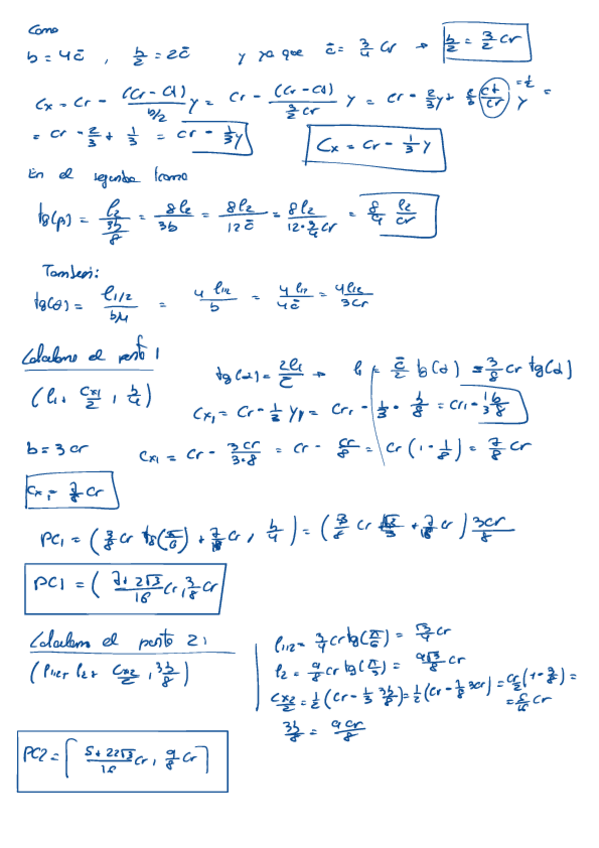 Como
b = 4c̄ , b/2 = 2c̄ y ya que c̄ = 3/4 Cr → b/2 = 3/2 Cr
Cx = Cr - (Cr - Ct)/(b/2) y = Cr - (Cr - Ct)/(3/2 Cr) y = Cr - 2/3 y + 2/3 (Ct/Cr) y =
= Cr - 2/3 + 1/3 = Cr - 1/3 y Cx = Cr - 1/3 y
En el segundo tramo
tg(β) = l2/(3b/8) = 8l2/3b = 8l2/12c̄ = 8l2/(12·3/4 Cr) = l2/Cr
Tambien:
tg(θ) = l1/2/(b/4) = 4 l1/2/b = 4 l1/2/4c̄ = 4l1/2/3Cr
Calculamos el punto 1
tg(α) = 2l1/c̄ → l1 = c̄/2 tg(α) = 3/8 Cr tg(α)
(l1, Cx1/2, b/4)
Cx1 = Cr - 1/3 y1 = Cr - 1/3 · b/8 = Cr - 1/3 b/8
b = 3 Cr
Cx1 = Cr - 3Cr/3·8 = Cr - Cr/8 = Cr (1 - 1/8) = 7/8 Cr
Cx1 = 7/8 Cr
PC1 = (3/8 Cr tg(π/6) + 7/16 Cr, b/4) = (3/8 Cr √3/3 + 7/16 Cr) 3Cr/8
PC1 = (7+2√3/16 Cr, 3/8 Cr
Calculamos el punto 2:
(l1/2 + l2 + Cx2/2, 3b/8)
l1/2 = 3/4 Cr tg(π/6) = √3/4 Cr
l2 = 9/8 Cr tg(π/3) = 9√3/8 Cr
Cx2/2 = 1/2 (Cr - 1/3 3b/8) = 1/2 (Cr - 1/8 3Cr) = Cr/2 (1 - 3/8) =
= 5/16 Cr
3b/8 = 9Cr/8
PC2 = [5+22√3/16 Cr, 9/8 Cr]